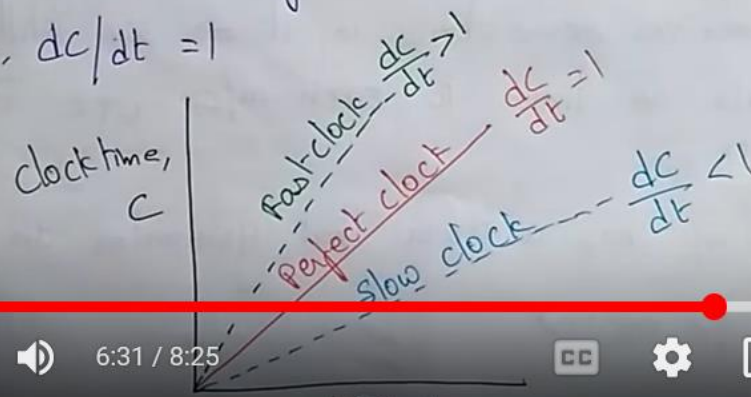 dc/dt = 1
clock time,
C
Fast clock dc/dt > 1
Perfect clock dc/dt = 1
Slow clock dc/dt < 1
6:31 / 8:25
CC